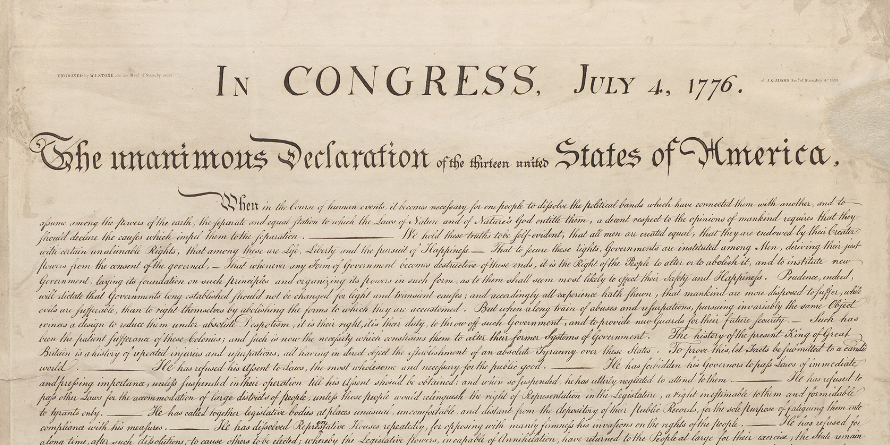 IN CONGRESS, JULY 4, 1776.
The unanimous Declaration of the thirteen united States of America,
When in the Course of human events it becomes necessary for one people to dissolve the political bands which have connected them with another, and to
assume among the powers of the earth, the separate and equal station to which the Laws of Nature and of Nature's God entitle them, a decent respect to the opinions of mankind requires that they
should declare the causes which impel them to the separation. — We hold these truths to be self-evident, that all men are created equal, that they are endowed by their Creator
with certain unalienable Rights, that among these are Life, Liberty and the pursuit of Happiness — That to secure these rights, Governments are instituted among Men, deriving their just
powers from the consent of the governed, — That whenever any Form of Government becomes destructive of these ends, it is the Right of the People to alter or to abolish it, and to institute new
Government, laying its foundation on such principles and organizing its powers in such form, as to them shall seem most likely to effect their Safety and Happiness. Prudence, indeed,
will dictate that Governments long established should not be changed for light and transient causes; and accordingly all experience hath shewn, that mankind are more disposed to suffer, while
evils are sufferable, than to right themselves by abolishing the forms to which they are accustomed. But when a long train of abuses and usurpations, pursuing invariably the same Object
evinces a design to reduce them under absolute Despotism, it is their right, it is their duty, to throw off such Government, and to provide new Guards for their future security. — Such has
been the patient sufferance of these Colonies; and such is now the necessity which constrains them to alter their former Systems of Government. The history of the present King of Great
Britain is a history of repeated injuries and usurpations, all having in direct object the establishment of an absolute Tyranny over these States. To prove this, let Facts be submitted to a candid
world. — He has refused his Assent to Laws, the most wholesome and necessary for the public good. — He has forbidden his Governors to pass Laws of immediate
and pressing importance, unless suspended in their operation till his Assent should be obtained; and when so suspended, he has utterly neglected to attend to them. — He has refused to
pass other Laws for the accommodation of large districts of people, unless those people would relinquish the right of Representation in the Legislature, a right inestimable to them and formidable
to tyrants only. — He has called together legislative bodies at places unusual, uncomfortable, and distant from the depository of their Public Records, for the sole purpose of fatiguing them into
compliance with his measures. — He has dissolved Representative Houses repeatedly, for opposing with manly firmness his invasions on the rights of the people. — He has refused for
a long time, after such dissolutions, to cause others to be elected; whereby the Legislative powers, incapable of Annihilation, have returned to the People at large for their exercise; the State remain